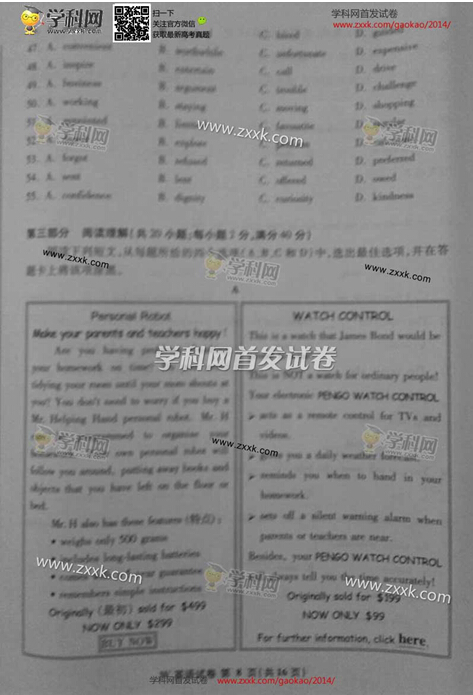 扫一下
关注官方微信
获取最新高考真题
学科网首发试卷
www.zxxk.com/gaokao/2014/
47. A. convenient B. worthwhile C. unfortunate D. expensive
48. A. inspire B. entertain C. call D. drive
49. A. business B. argument C. trouble D. challenge
50. A. working B. staying C. moving D. shopping
学科网
www.zxxk.com
53. A. forgot B. refused C. returned D. preferred
54. A. sent B. lent C. offered D. used
55. A. confidence B. dignity C. curiosity D. kindness
第三部分 阅读理解(共20小题;每小题2分,满分40分)
阅读下列短文,从每题所给的四个选项(A、B、C和D)中,选出最佳选项,并在答
题卡上将该项涂黑。
www.zxxk.com
A
Personal Robot
Make your parents and teachers happy!
Are you having
your homework on time?
tidying your room until your mom shouts at
you? You don't need to worry if you buy a
Mr. Helping Hand personal robot. Mr. H
to organize your
own personal robot will
follow you around, putting away books and
objects that you have left on the floor or
bed.
Mr. H also has these features (特点):
• weighs only 500 grams
• includes long-lasting batteries
guarantee
• remembers simple instructions
Originally (最初) sold for $499
NOW ONLY $299
BUY NOW
WATCH CONTROL
This is a watch that James Bond would be
This is NOT a watch for ordinary people!
Your electronic PENGO WATCH CONTROL
➢ acts as a remote control for TVs and
videos.
you a daily weather forecast.
➢ reminds you when to hand in your
homework.
➢ sets off a silent warning alarm when
parents or teachers are near.
Besides, your PENGO WATCH CONTROL
always tell you the time accurately!
Originally sold for $399
NOW ONLY $99
For further information, click here.
学科网首发试卷
学科网
www.zxxk.com
学科网
www.zxxk.com
学科网
www.zxxk.com
英语试卷 第 8 页(共16页)
学科网首发试卷 www.zxxk.com/gaokao/2014/